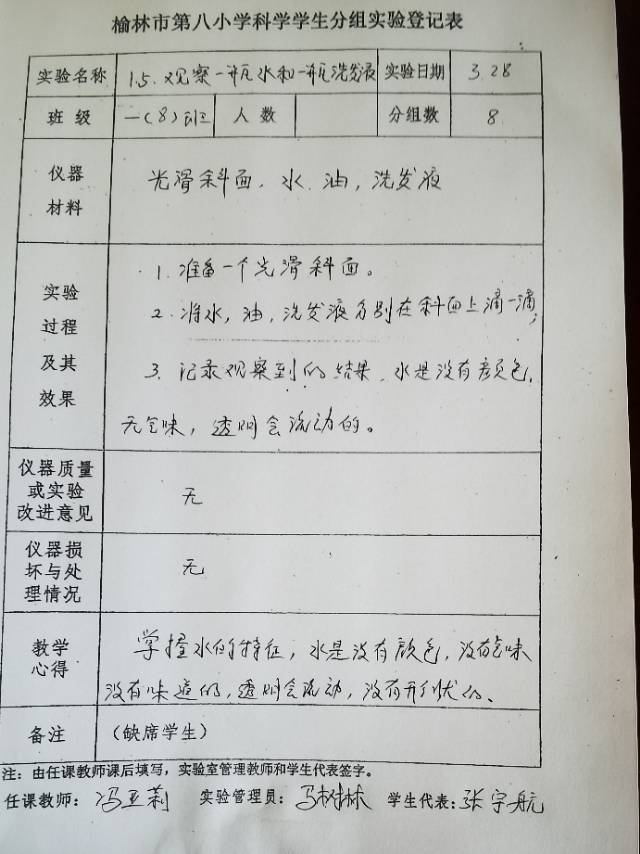 榆林市第八小学科学学生分组实验登记表
实验名称 15.观察一瓶水和一瓶洗发液 实验日期 3.28
班级 一(8)班 人数 分组数 8
仪器
材料
光滑斜面、水、油，洗发液
实验
过程
及其
效果
1.准备一个光滑斜面。
2.将水，油，洗发液分别在斜面上滴一滴，
3.记录观察到的结果，水是没有颜色，
无气味，透明会流动的。
仪器质量
或实验
改进意见
无
仪器损
坏与处
理情况
无
教学
心得
掌握水的特征，水是没有颜色，没有气味
没有味道的，透明会流动，没有形状的、
备注 (缺席学生)
注：由任课教师课后填写，实验室管理教师和学生代表签字。
任课教师：冯亚莉 实验管理员：马树林 学生代表：张宇航